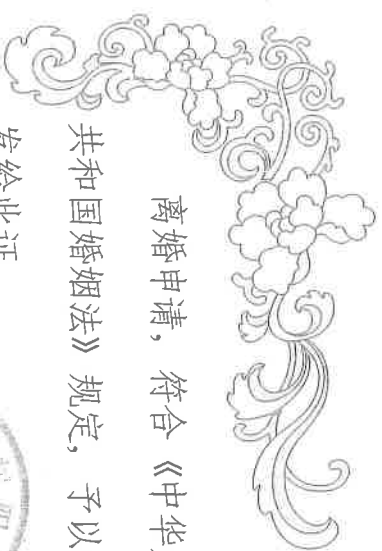 离婚申请，符合《中华
共和国婚姻法》规定，予以
发给此证